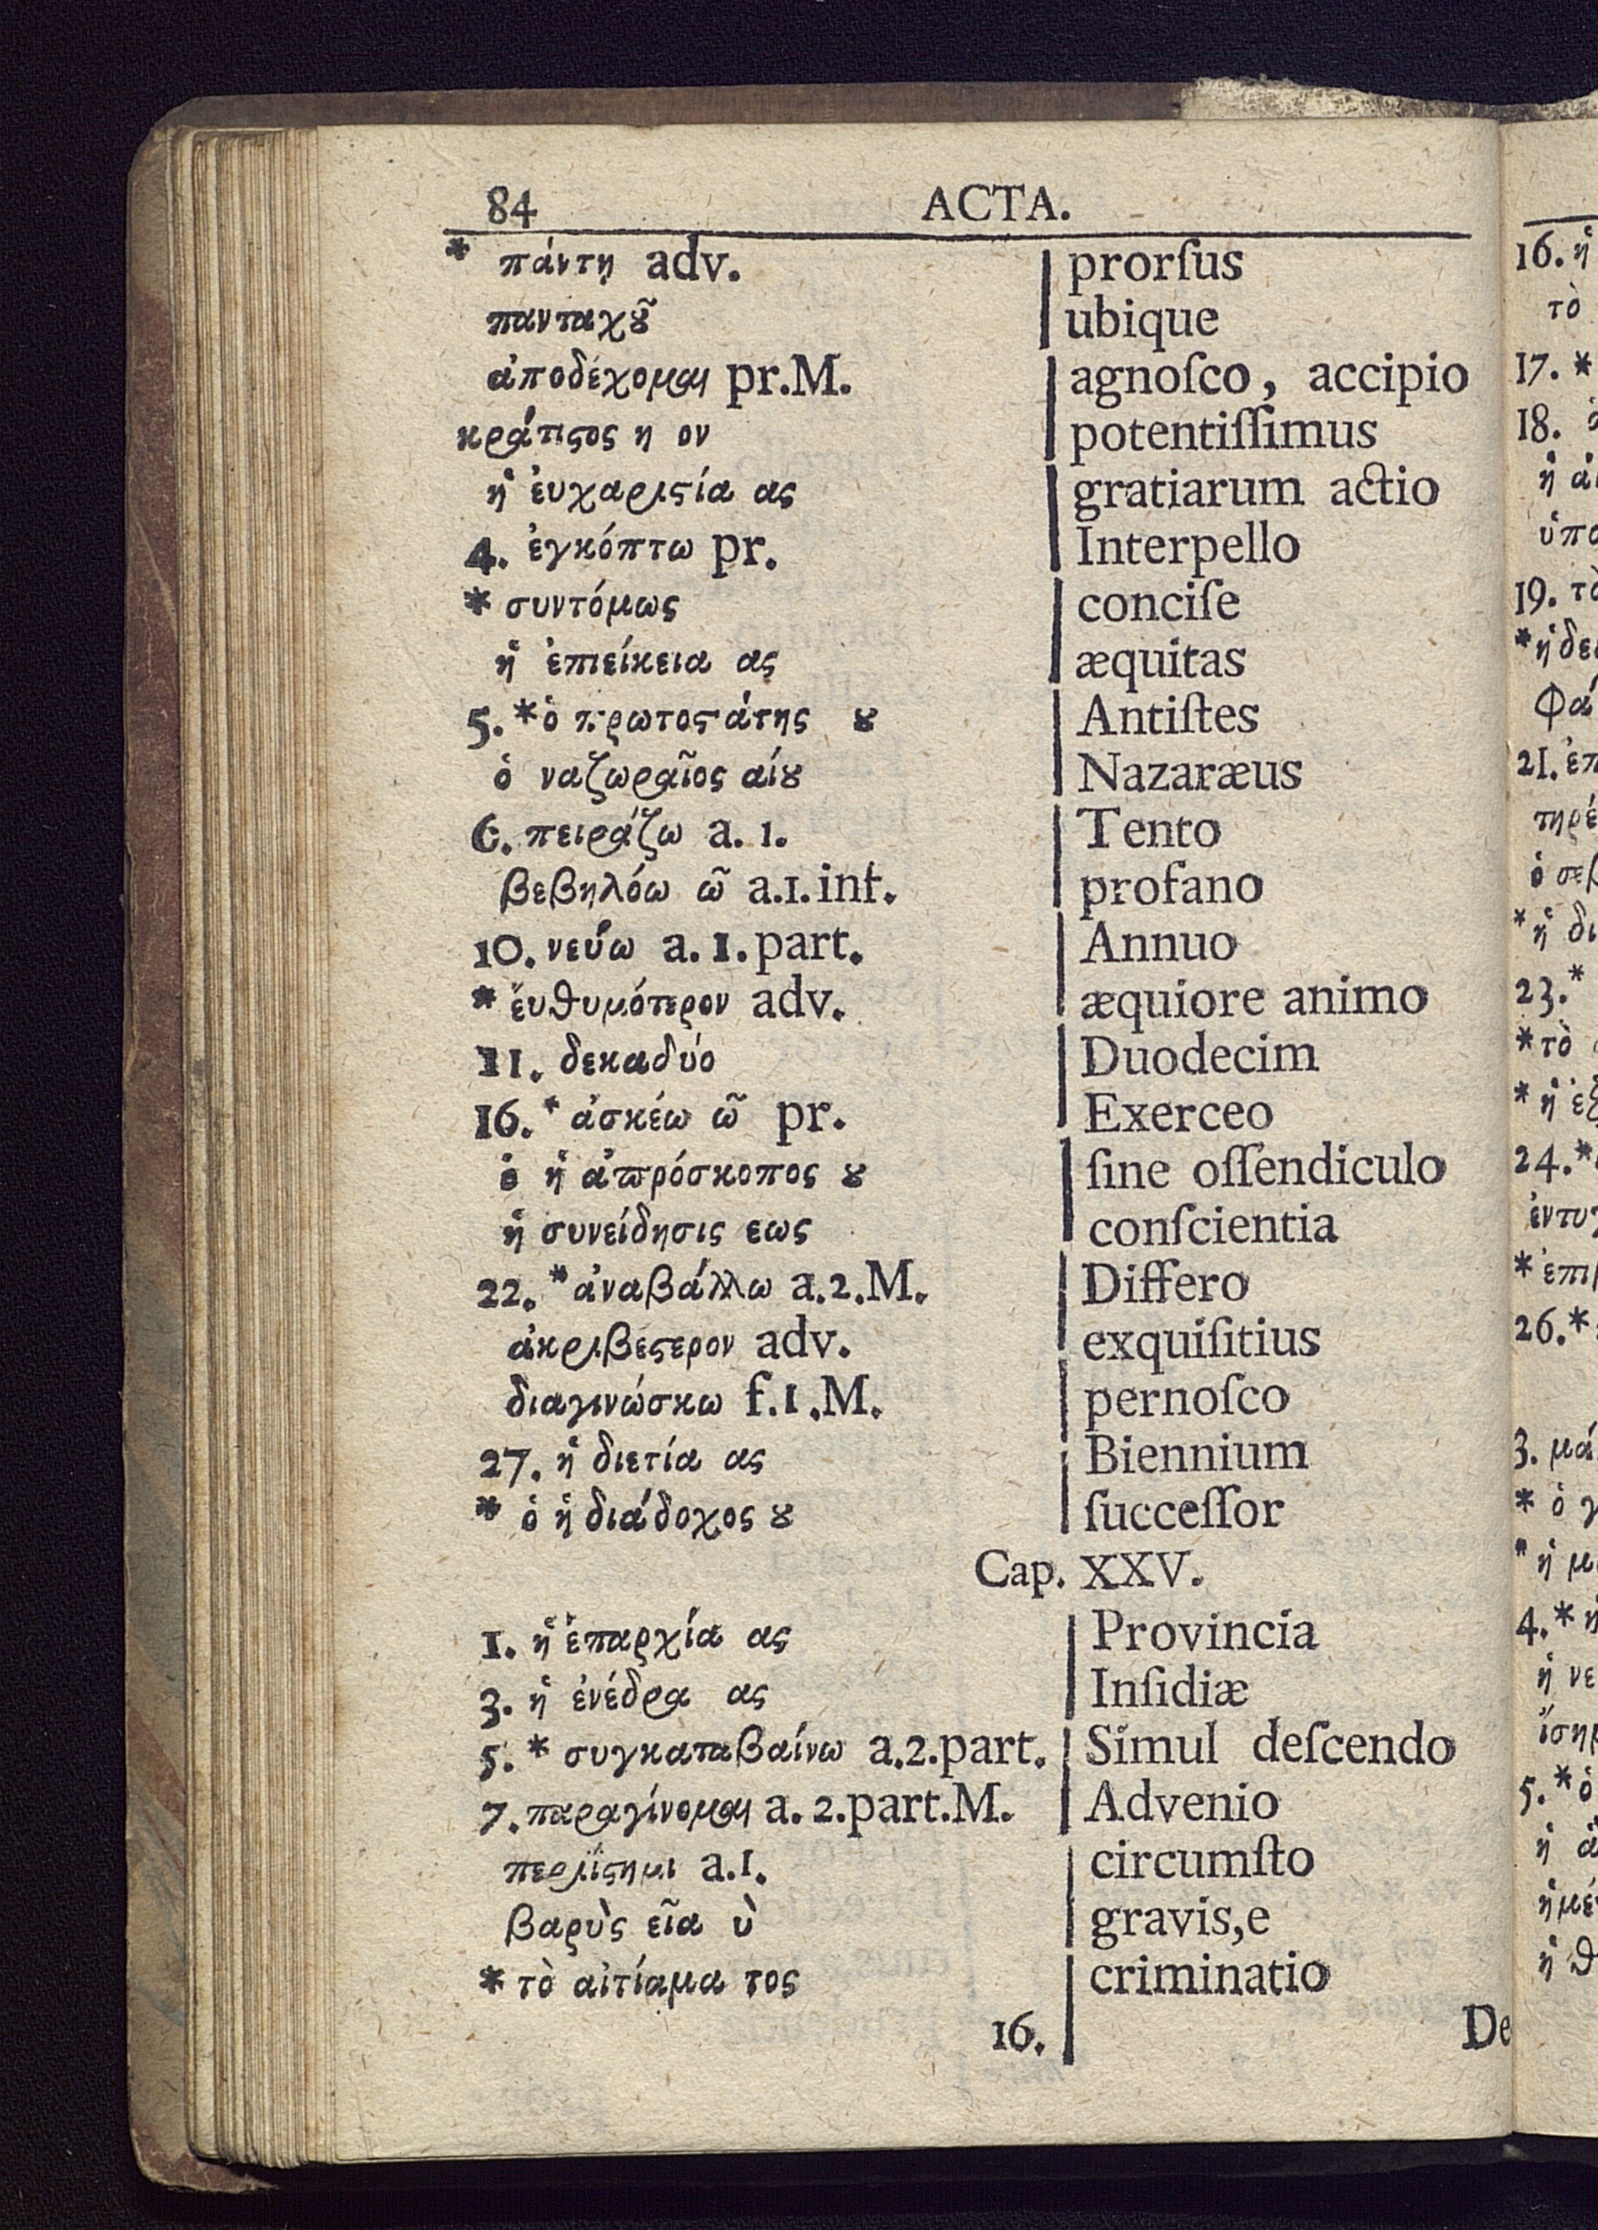 84 ACTA.
* πάντη adv. | prorſus
πανταχȣ͂ | ubique
ἀποδέχομαι pr.M. | agnoſco, accipio
κράτιϛος η ον | potentiſſimus
ἡ ἐυχαριϛία ας | gratiarum actio
4. ἐγκόπτω pr. | Interpello
* συντόμως | conciſe
ἡ ἐπιείκεια ας | æquitas
5. * ὁ πρωτοϛάτης ȣ | Antiſtes
ὁ ναζωραῖος αίȣ | Nazaræus
6. πειράζω a. 1. | Tento
βεβηλόω ῶ a.1.inf. | profano
10. νεύω a. 1. part. | Annuo
* ἔυθυμότερον adv. | æquiore animo
11. δεκαδύο | Duodecim
16. * ἀσκέω ῶ pr. | Exerceo
ὁ ἡ ἀπρόσκοπος ȣ | ſine offendiculo
ἡ συνείδησις εως | conſcientia
22. * ἀναβάλλω a.2.M. | Differo
ἀκριβέϛερον adv. | exquiſitius
διαγινώσκω f.1.M. | pernoſco
27. ἡ διετία ας | Biennium
* ὁ ἡ διάδοχος ȣ | ſucceſſor
Cap. XXV.
1. ἡ ἐπαρχία ας | Provincia
3. ἡ ἐνέδρα ας | Inſidiæ
5. * συγκαταβαίνω a.2.part. | Simul deſcendo
7. παραγίνομαι a. 2.part.M. | Advenio
περιΐϛημι a.1. | circumſto
βαρὺς εῖα ὺ | gravis,e
* τὸ αἰτίαμα τος | criminatio
16. | De
16. ἡ
τὸ
17. *
18.
ἡ
19. τὸ
* ἡ
21.
ὁ
* ἡ
23. *
* τὸ
* ἡ
24. *
*
26. *
3.
* ὁ
* ἡ
4. * ἡ
ἡ
5. * ὁ
ἡ
ἡ